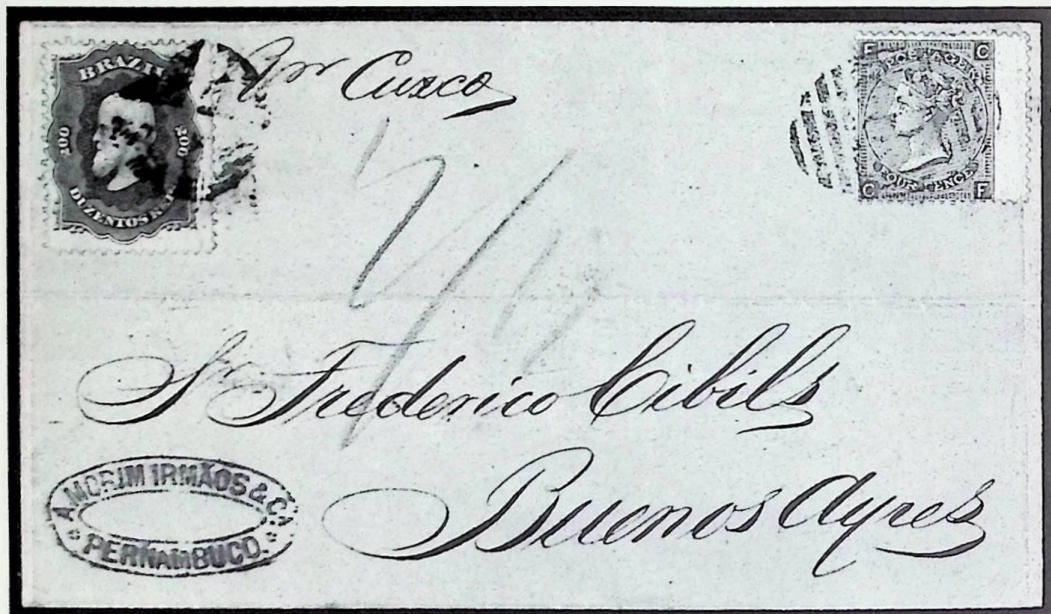 BRAZIL
200 200
DUZENTOS R.
Cuzco
F C
POSTAGE
FOUR PENCE
C F
Sr Frederico Cibils
Buenos Ayres
AMORIM IRMÃOS & CA
PERNAMBUCO.